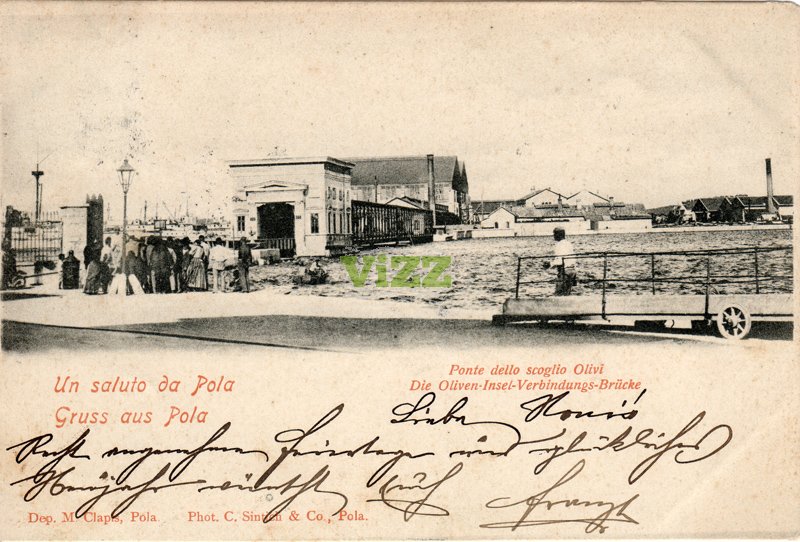 vizz
Un saluto da Pola
Gruss aus Pola
Ponte dello scoglio Olivi
Die Oliven-Insel-Verbindungs-Brücke
Liebe
Recht angenehme Feiertage und glückliches
Neujahr wünscht Euch Franz
Dep. M. Clapis, Pola. Phot. C. Sintich & Co., Pola.